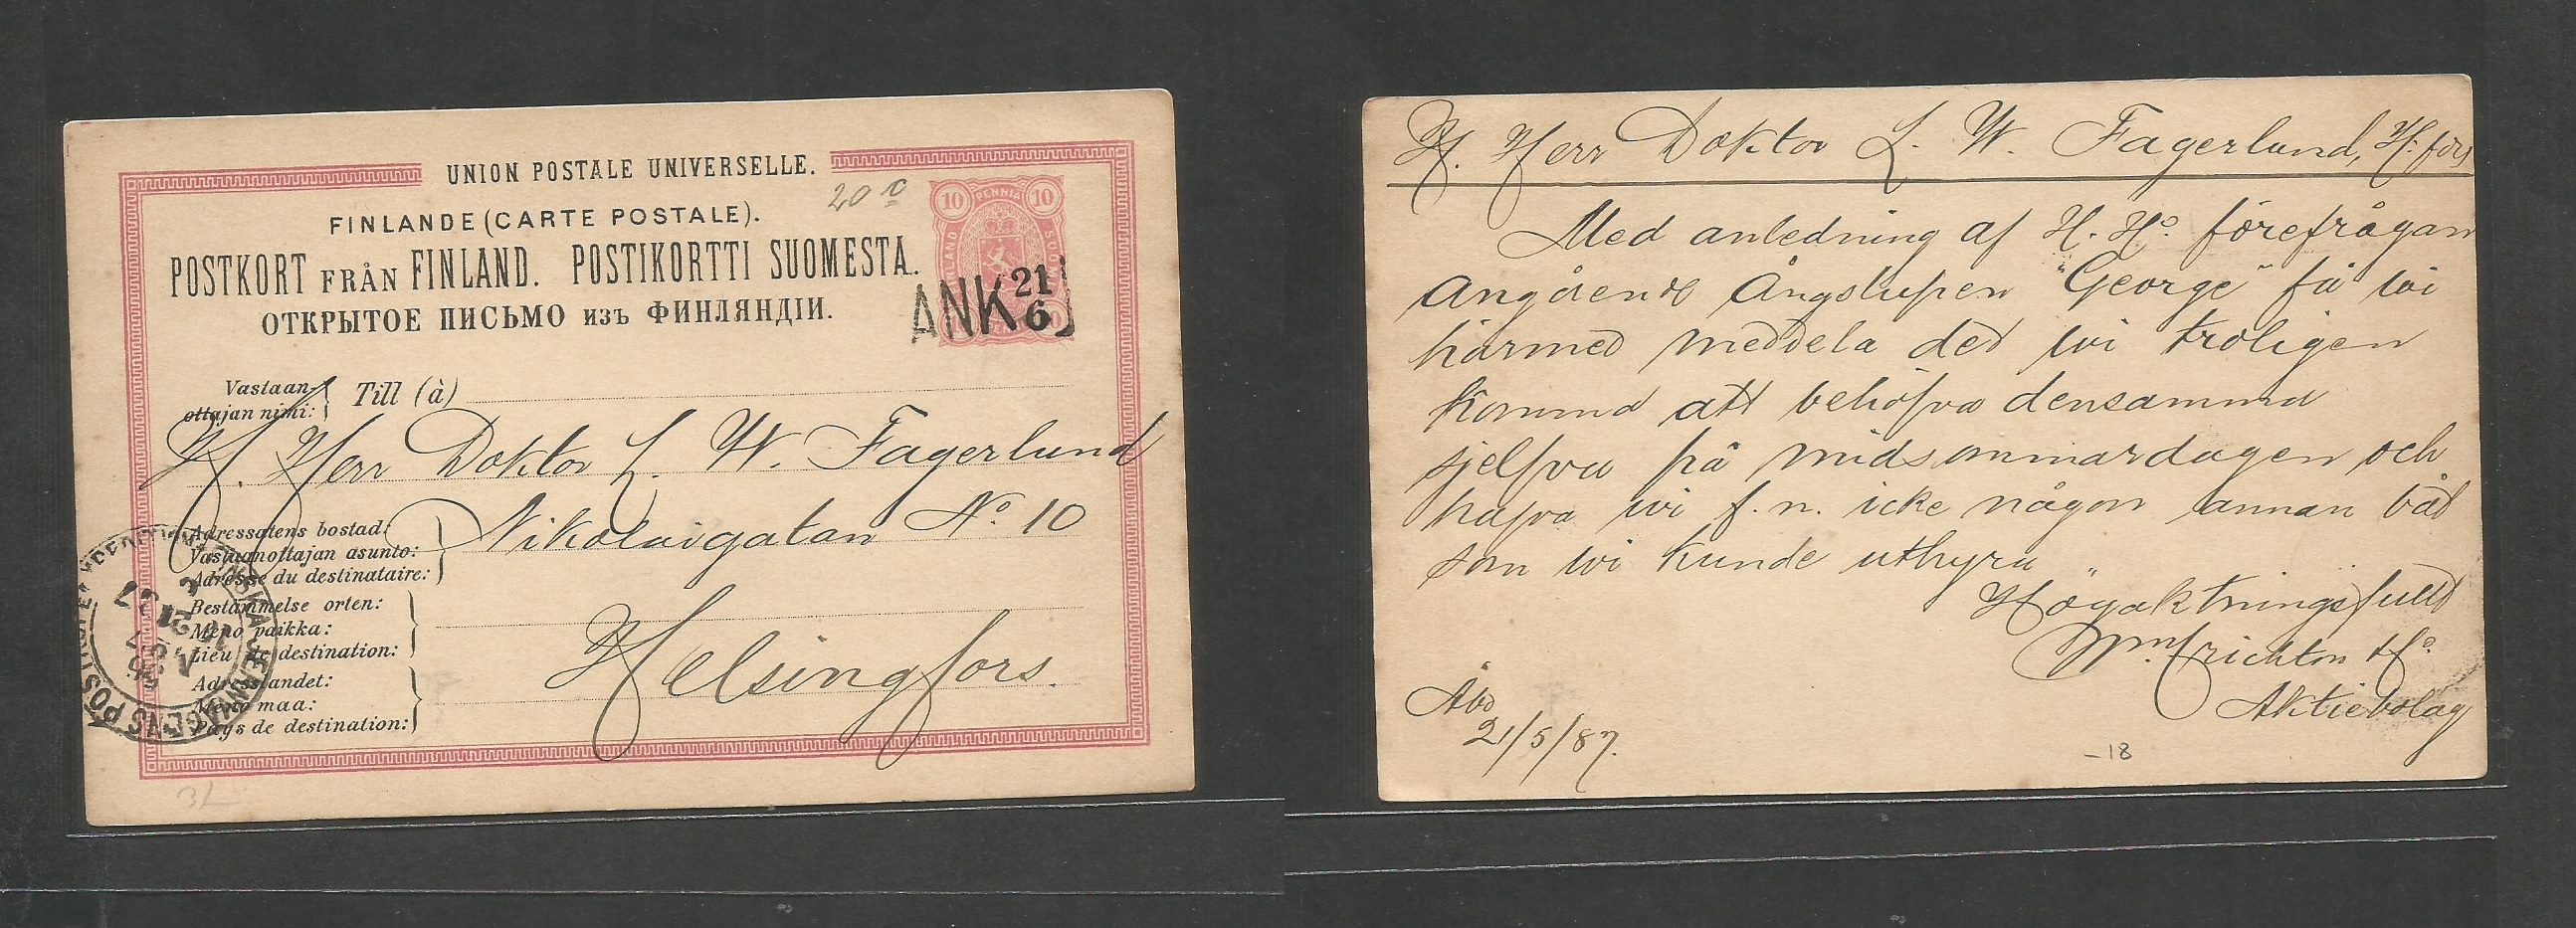 UNION POSTALE UNIVERSELLE.
20
FINLANDE (CARTE POSTALE).
POSTKORT FRÅN FINLAND. POSTIKORTTI SUOMESTA.
ОТКРЫТОЕ ПИСЬМО изъ ФИНЛЯНДІИ.
10 PENNIÄ 10
ANK 21
6
Vastaan-
ottajan nimi: Till (à)
H. Herr Doktor L. W. Fagerlund
Adressatens bostad:
Vastaanottajan asunto:
Adresse du destinataire:
Nikolaigatan No. 10
Bestämmelse orten:
Meno paikka:
Lieu de destination:
Helsingfors.
Adresslandet:
Meno maa:
Pays de destination:
H. Herr Doktor L. W. Fagerlund, H:fors
Med anledning af H. Hr. förefrågan
angående Ångslupen "George" få wi
härmed meddela det wi troligen
komma att behöfva densamma
sjelfva på midsommardagen och
hafva wi f. n. icke någon annan båt
som wi kunde uthyra
Högaktningsfullt
Wm. Crichton & Co.
Aktiebolag
Åbo
21/5/87.
-18